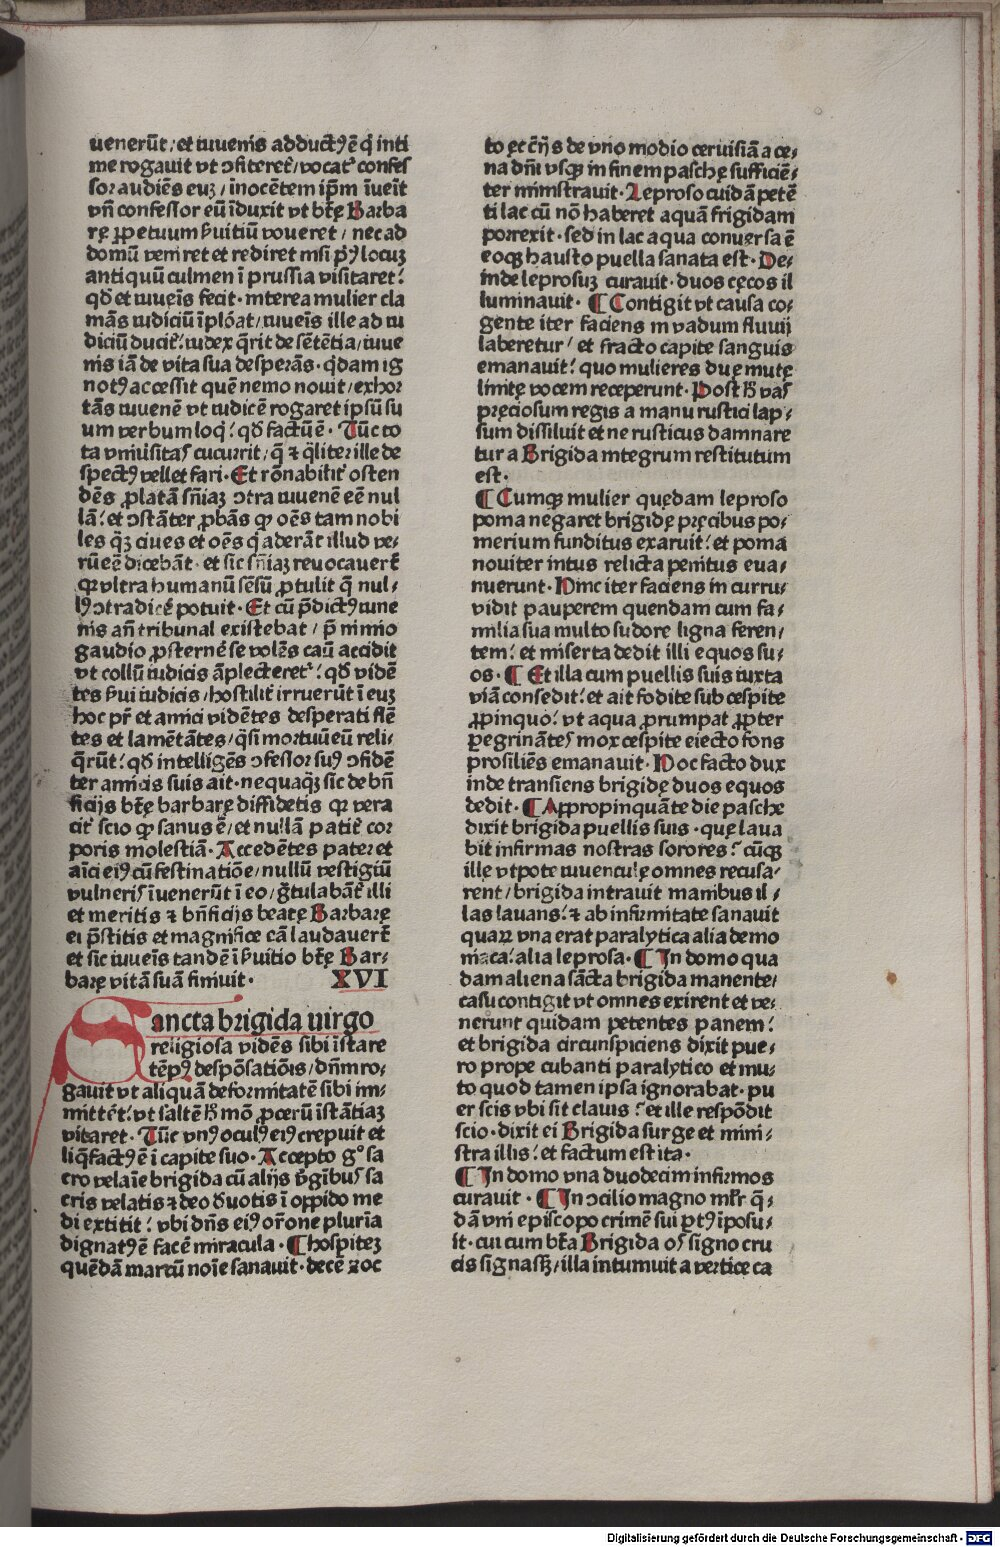 uenerūt / et iuuenis adductꝰ ē q̄ inti
me rogauit vt ɔfiteret᷑ / vocat᷑ confes
sor audiēs euꝫ / inocētem ip̄m īueīt
vn̄ confessor eū īduxit vt btę̄ Barba
rę ꝑpetuum ẜuitiū voueret / nec ad
domū veniret et rediret nisi prꝰ locuꝫ
antiquū culmen ī prussia visitaret?
qđ et iuuēis fecit · interea mulier cla
mās iudiciū īplōat / iuueīs ille ad iu
diciū ducit᷑? iudex q̄rit de sētētia / iuue
nis iā de vita sua desperās · qdam ig
notꝰ accessit quē nemo nouit / exhor
tās iuuenē vt iudicē rogaret ipsū su
um verbum loqͥ? qđ factū ē · Tūc to
ta vniūsitas cucurrit / q̄ ⁊ qͣliter ille de
spectꝰ vellet fari · Et rōnabilit᷑ osten
dēs ꝓlatā sn̄iaꝫ ɔtra iuuenē eē nul
lā? et ɔstāter ꝓbās ꝙ oēs tam nobi
les q̄ꝫ ciues et oēs q̄ aderāt illud ve-
rū eē dicebāt · et sic sn̄iaꝫ reuocauer̄t
qꝛ vltra humanū sēsū ꝓtulit q̄ nul-
lꝰ ɔtradicē potuit · Et cū p̄dictꝰ iuue
nis an̄ tribunal existebat / p̄ nimio
gaudio ꝓsternē se volēs caū accidit
vt collū iudicis āplecteret᷑? qđ vidē
tes ẜui iudicis / hostilit᷑ irruerūt ī euꝫ
hoc pr̄ et amici vidētes desperati flē
tes et lamētātes / q̄si mortuū eū reli-
q̄rūt? qđ intelligēs ɔfessor suꝰ ɔfidē
ter amicis suis ait · nequaqꝫ sic de bn̄
ficijs btę̄ barbarę diffidetis qꝛ vera
cit᷑ scio ꝙ sanus ē / et nullā patit᷑ cor
poris molestiā · Accedētes pater et
aīci eiꝰ cū festinatiōe / nullū vestigiū
vulneris īuenerūt ī eo / gͣtulabāt᷑ illi
et meritis ⁊ bn̄ficijs beatę Barbarę
ei p̄stitis et magnifice cā laudauer̄t
et sic iuueīs tandē ī ẜuitio btę̄ Bar-
barę vitā suā finiuit · XVI
Sancta brigida uirgo
religiosa vidēs sibi īstare
tēpꝰ despōsatiōis / dn̄m ro-
gauit vt aliquā deformitatē sibi im-
mittēt? vt saltē ħ mō ꝓcerū īstātiaꝫ
vitaret · Tūc vnꝰ oculꝰ eiꝰ crepuit et
liq̄factꝰ ē ī capite suo · Accepto gͦ sa
cro velaīe brigida cū alijs v̄gībus sa
cris velatis ⁊ deo ďuotis ī oppido me
di extitit? vbi dn̄s eiꝰ or̄one plurīa
dignatꝰ ē facē miracula · ¶ hospiteꝫ
quēdā marcū noīe sanauit · decē ⁊ oc
to ęccīijs de vno modio ceruisiā a ce-
na dn̄i vsqꝫ in finem paschę sufficiē-
ter ministrauit · Leproso cuidā petē
ti lac cū nō haberet aquā frigidam
porrexit · sed in lac aqua conuersa ē
eoqꝫ hausto puella sanata est · De-
inde leprosuꝫ curauit · duos cęcos il
luminauit · ¶ Contigit vt causa co-
gente iter faciens in vadum fluuij
laberetur / et fracto capite sanguis
emanauit? quo mulieres duę mutę
limitę vocem receperunt · Post ħ vas
pręciosum regis a manu rustici lap-
sum dissiluit et ne rusticus damnare
tur a Brigida integrum restitutum
est ·
¶ Cumqꝫ mulier quędam leproso
poma negaret brigidę pręcibus po-
merium funditus exaruit? et poma
nouiter intus relicta penitus eua-
nuerunt · Hinc iter faciens in curru-
vidit pauperem quendam cum fa-
milia sua multo sudore ligna feren-
tem? et miserta dedit illi equos su-
os · ¶ Et illa cum puellis suis iuxta
viā consedit? et ait fodite sub cespite
ꝓpinquo? vt aqua prumpat ꝓpter
peregrinātes mox cespite eiecto fons
prosiliēs emanauit · Hoc facto dux
inde transiens brigidę duos equos
dedit · ¶ Appropinquāte die pasche
dixit brigida puellis suis · quę laua
bit infirmas nostras sorores? cūqꝫ
illę vtpote iuuenculę omnes recusa-
rent / brigida intrauit manibus il-
las lauans? ⁊ ab infirmitate sanauit
quaꝝ vna erat paralytica alia demo
niaca? alia leprosa · ¶ In domo qua
dam aliena sācta brigida manente-
casu contigit vt omnes exirent et ve-
nerunt quidam petentes panem?
et brigida circunspiciens dixit pue-
ro prope cubanti paralytico et mu-
to quod tamen ipsa ignorabat · pu
er scis vbi sit clauis? et ille respōdit
scio · dixit ei Brigida surge et mini-
stra illis? et factum est ita ·
¶ In domo vna duodecim infirmos
curauit · ¶ In ɔcilio magno ml̄r q̄-
dā vni episcopo crimē sui ꝑtꝰ īposu-
it · cui cum btā Brigida os signo cru
cis signasꝫ / illa intumuit a vertice ca
Digitalisierung gefördert durch die Deutsche Forschungsgemeinschaft · DFG